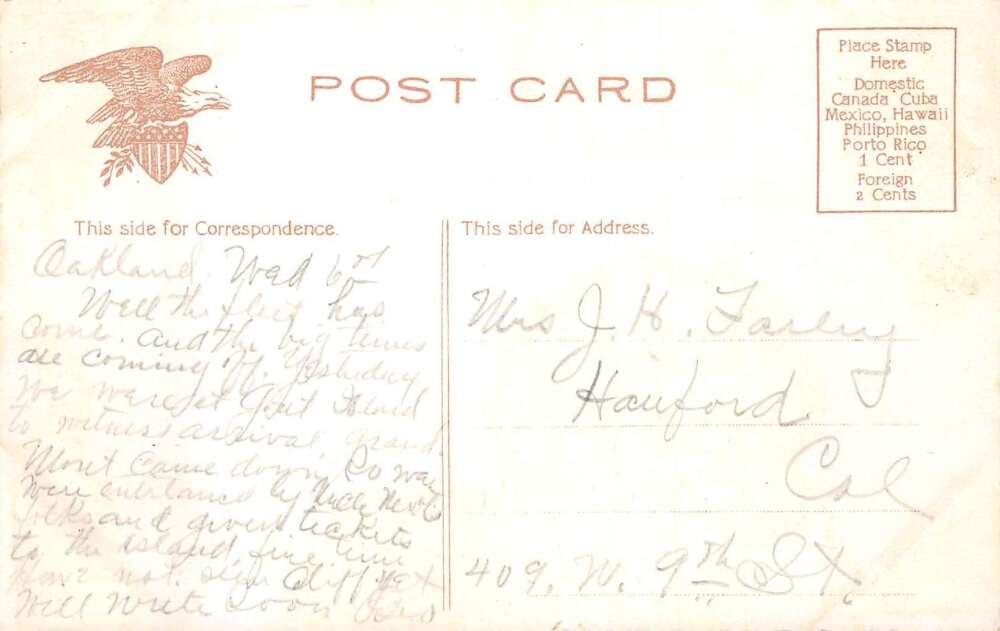 POST CARD
Place Stamp
Here
Domestic
Canada Cuba
Mexico, Hawaii
Philippines
Porto Rico
1 Cent
Foreign
2 Cents
This side for Correspondence.
Oakland. Wed
Well the fleet has
come. and the big times
are coming off. Yesterday
we were at Goat Island
to witness arrival, grand.
Mont came down, so we
were entertained by
folks and given tickets
to the island, fine time
Have not seen Cliff yet
Will write soon
This side for Address.
Mrs J. H. Farley
Hanford
Cal
409. W. 9th St.